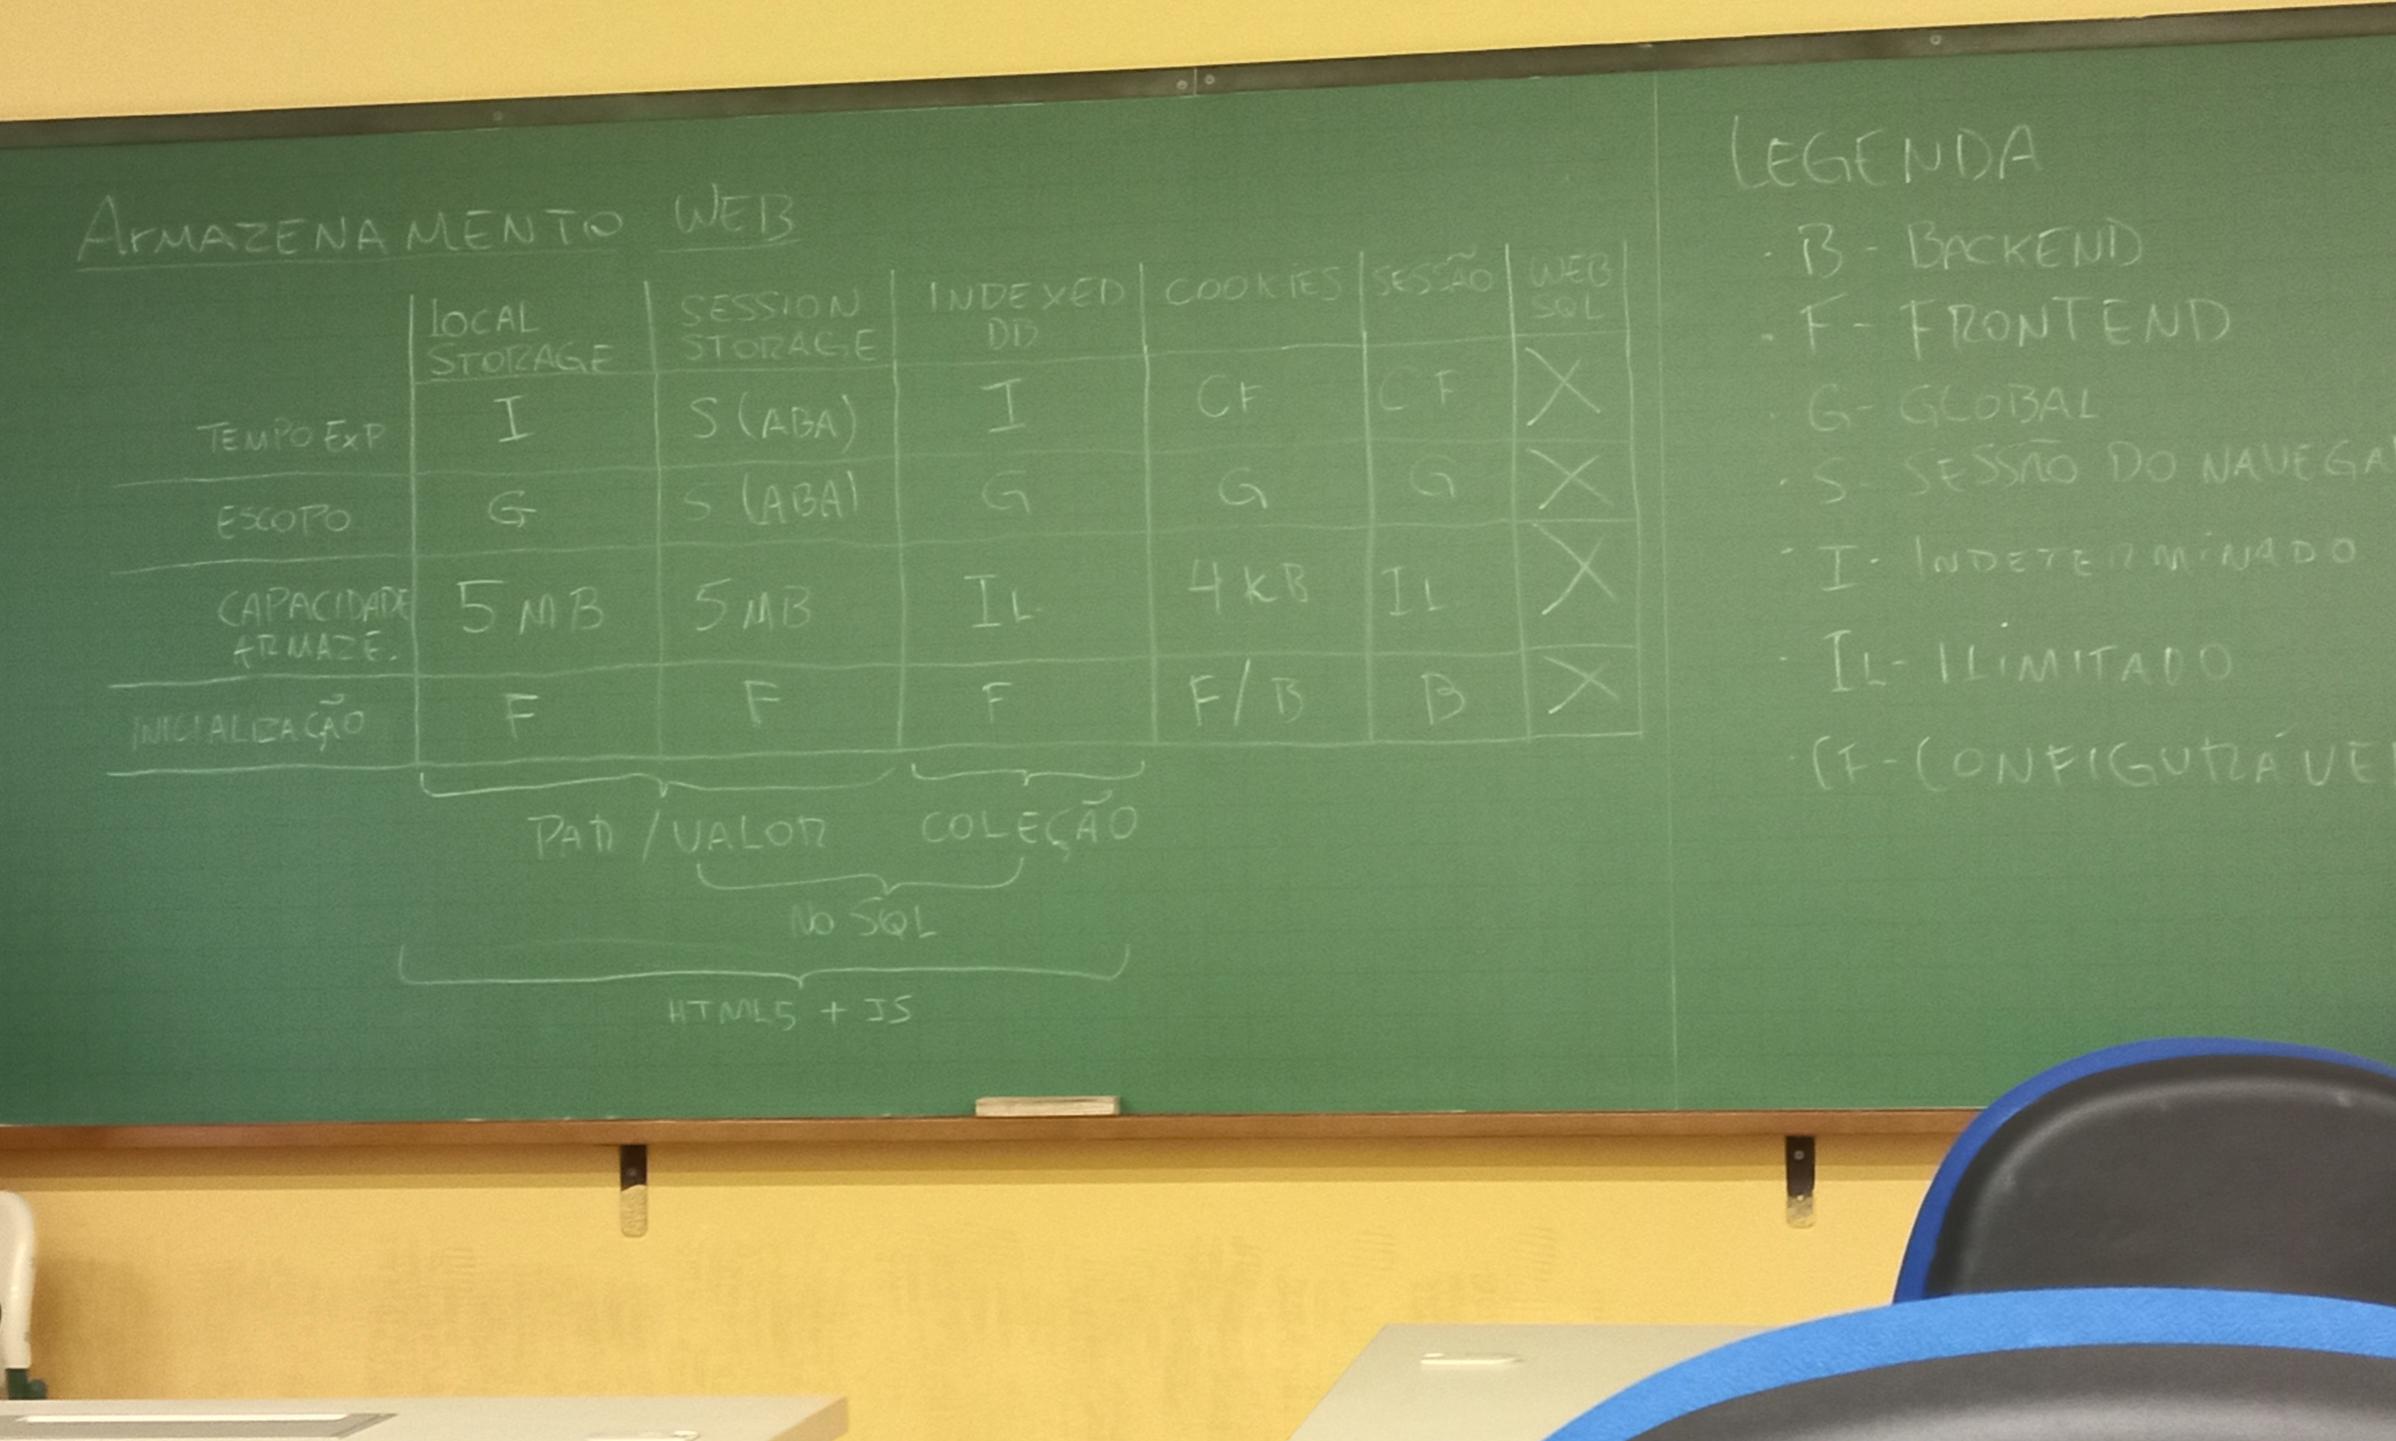 ARMAZENAMENTO WEB
LOCAL STORAGE SESSION STORAGE INDEXED DB COOKIES SESSÃO WEB SQL
TEMPO EXP I S (ABA) I CF CF X
ESCOPO G S (ABA) G G G X
CAPACIDADE ARMAZE. 5MB 5MB IL 4KB IL X
INICIALIZAÇÃO F F F F/B B X
PAR/VALOR COLEÇÃO
NO SQL
HTML5 + JS
LEGENDA
· B - BACKEND
· F - FRONTEND
· G - GLOBAL
· S - SESSÃO DO NAVEGA
· I - INDETERMINADO
· IL - ILIMITADO
· CF - CONFIGURÁVE